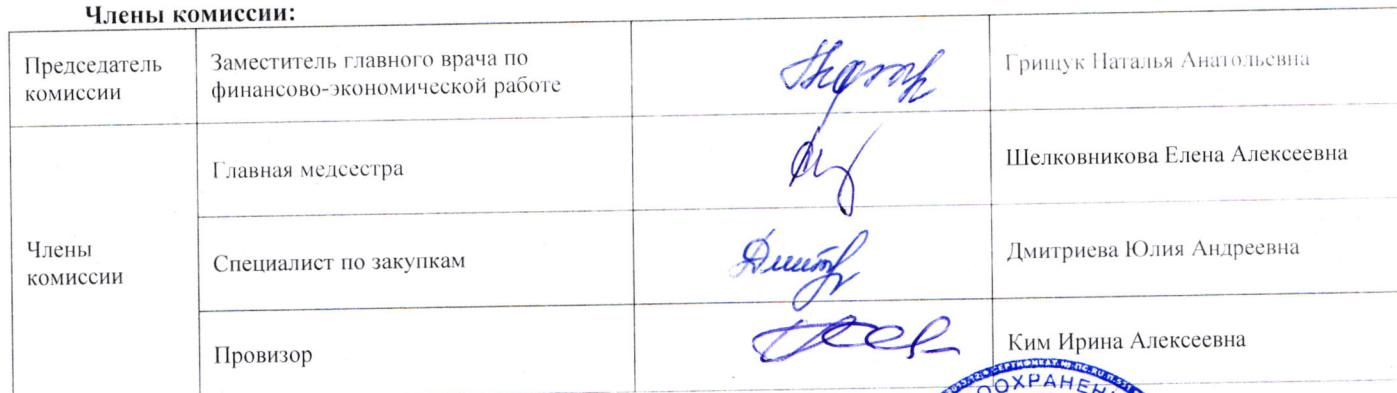 Члены комиссии:
Председатель
комиссии
Заместитель главного врача по
финансово-экономической работе
Грищук Наталья Анатольевна
Члены
комиссии
Главная медсестра
Шелковникова Елена Алексеевна
Специалист по закупкам
Дмитриева Юлия Андреевна
Провизор
Ким Ирина Алексеевна